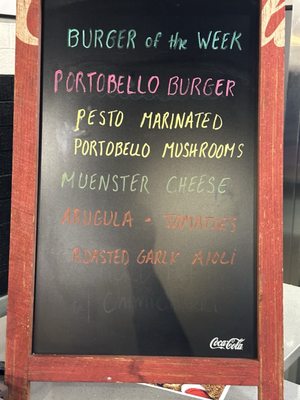 BURGER of the WEEK
PORTOBELLO BURGER
PESTO MARINATED
PORTOBELLO MUSHROOMS
MUENSTER CHEESE
ARUGULA - TOMATOES
ROASTED GARLIC AIOLI
Coca-Cola